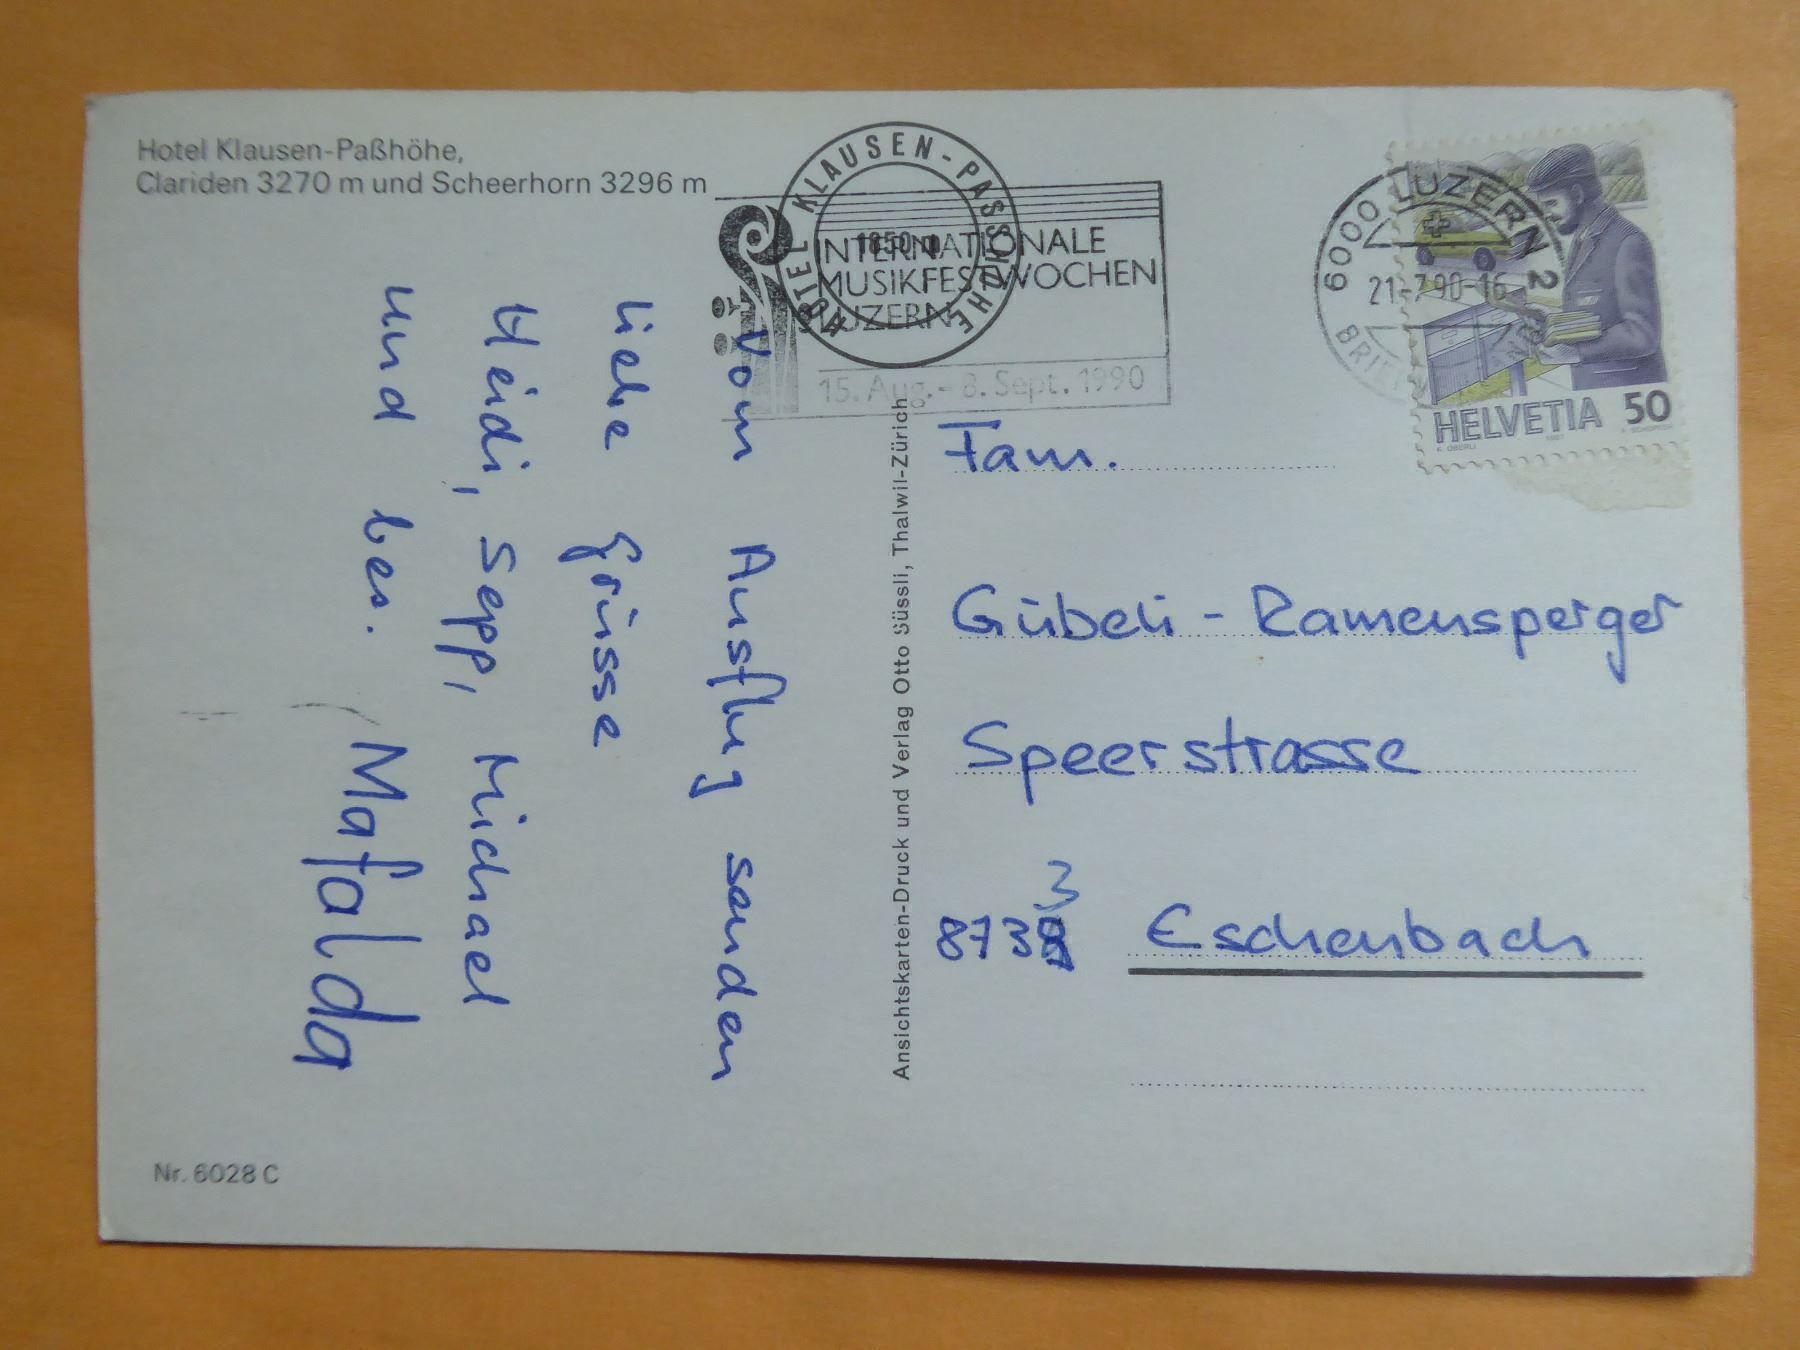 Hotel Klausen-Paßhöhe,
Clariden 3270 m und Scheerhorn 3296 m
HOTEL KLAUSEN-PASSHÖHE
1850 m
INTERNATIONALE
MUSIKFESTWOCHEN
LUZERN
15. Aug. - 8. Sept. 1990
6000 LUZERN 2
21-7.90-16
HELVETIA 50
Vom Ausflug senden
liebe Grüsse
Heidi, Sepp, Michael
und bes. Mafalda
Ansichtskarten-Druck und Verlag Otto Süssli, Thalwil-Zürich
Fam.
Gübeli - Ramensperger
Speerstrasse
8733 Eschenbach
Nr. 6028 C